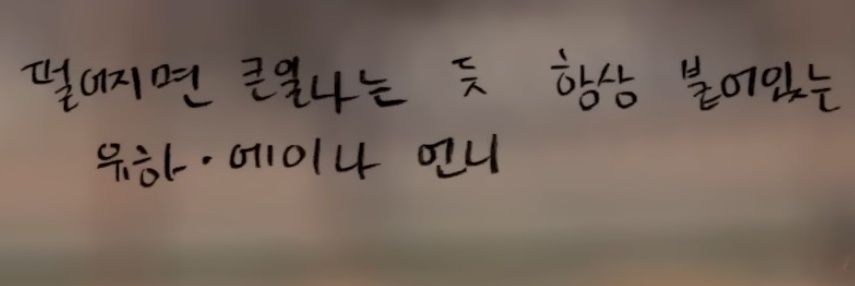 떨어지면 큰일나는 듯 항상 붙어있는
유하·에이나 언니